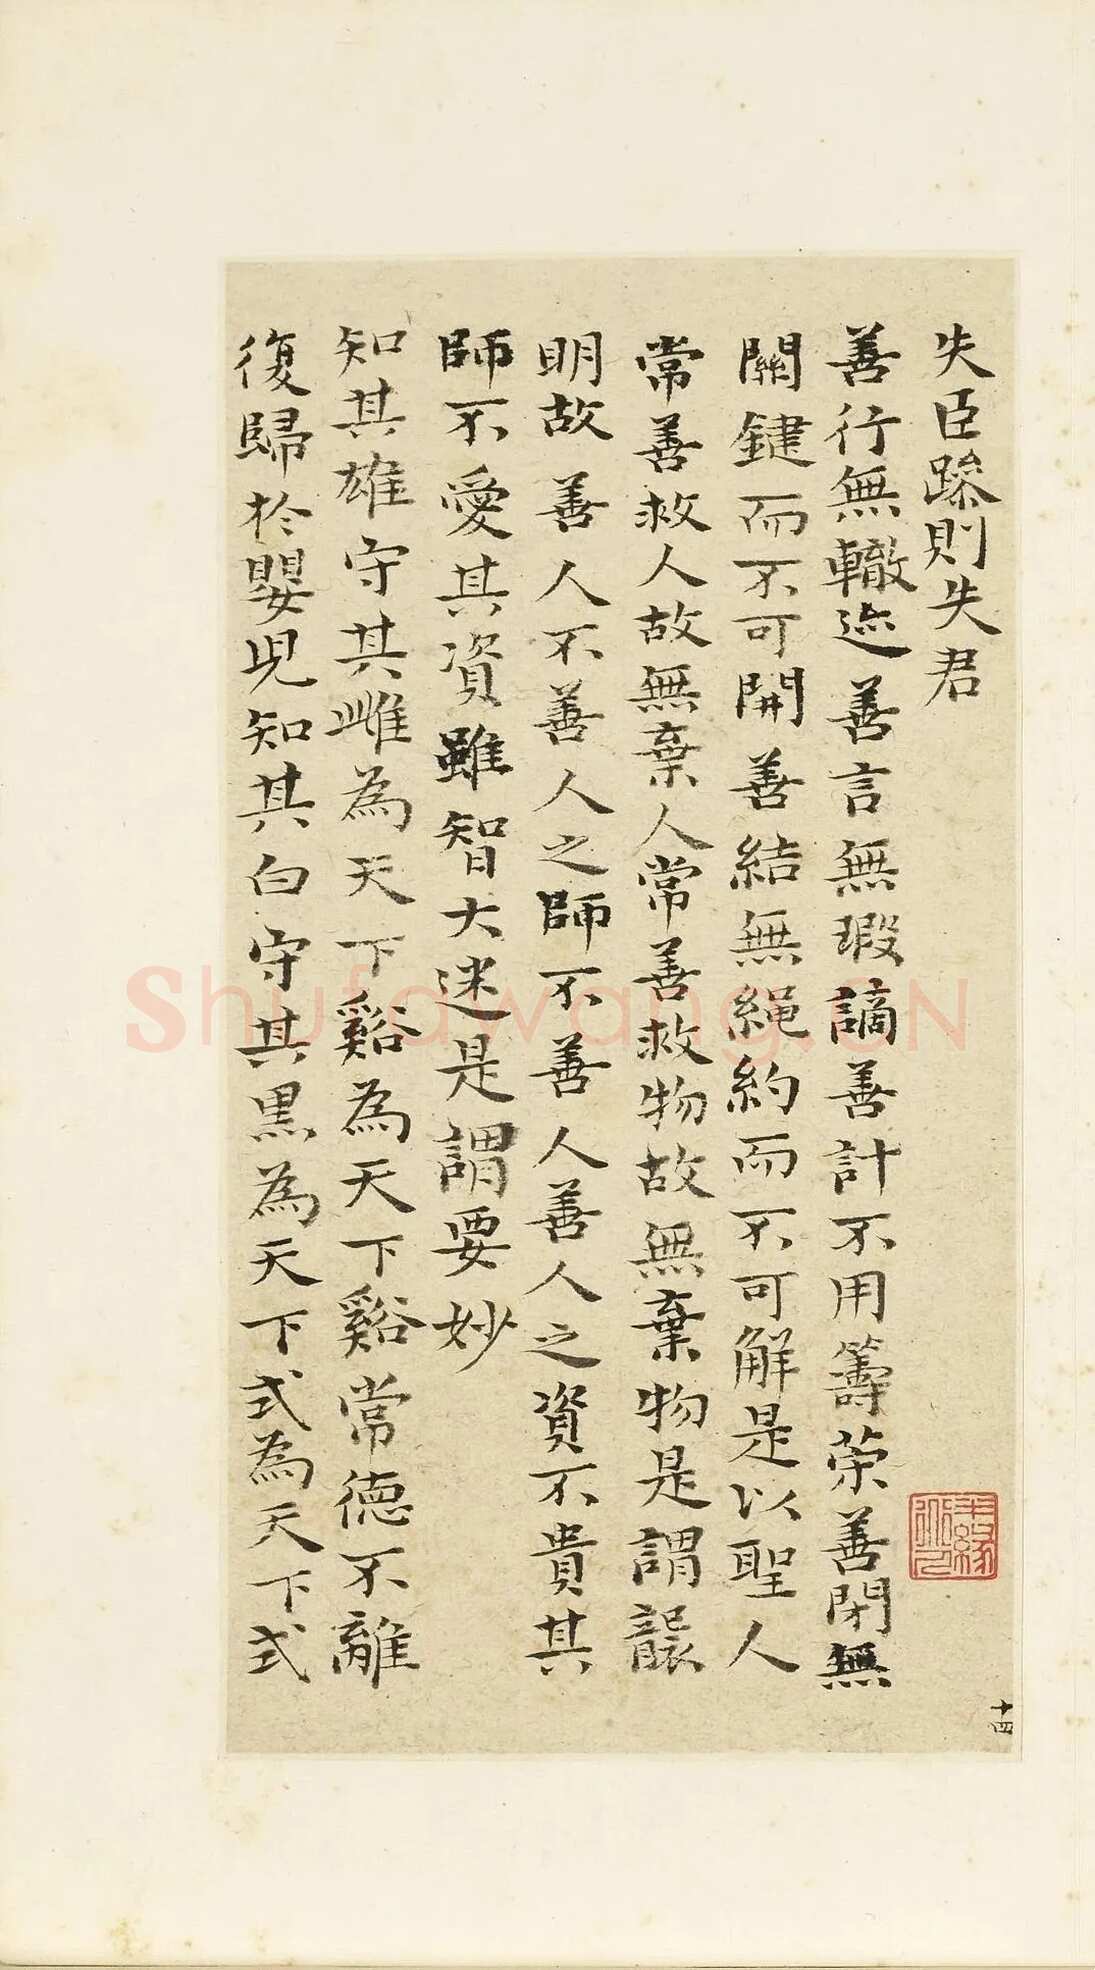 失臣躁則失君
善行無轍迹善言無瑕謫善計不用籌䇿善閉無
關鍵而不可開善結無繩約而不可解是以聖人
常善救人故無棄人常善救物故無棄物是謂襲
明故善人不善人之師不善人善人之資不貴其
師不愛其資雖智大迷是謂要妙
知其雄守其雌為天下谿為天下谿常德不離
復歸於嬰兒知其白守其黑為天下式為天下式
十四
Shufawang.CN